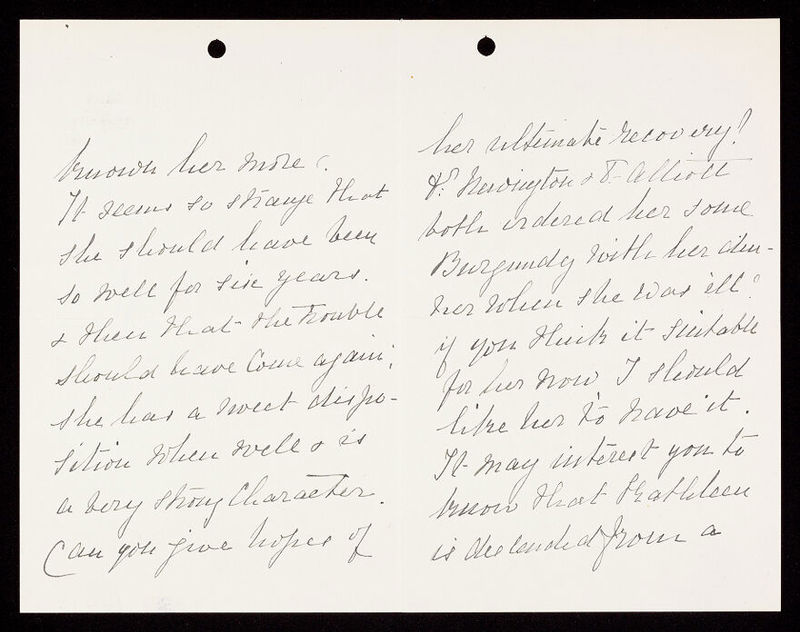 known her more.
It seems so strange that
she should have been
so well for six years.
& then that the trouble
should have come again;
she has a sweet dispo-
sition when well & is
a very strong character.
Can you give hopes of
her ultimate recovery?
Dr. Newington & Dr. Elliott
both ordered her some
Burgundy with her din-
ner when she was ill;
if you think it suitable
for her now I should
like her to have it.
It may interest you to
know that Kathleen
is descended from a